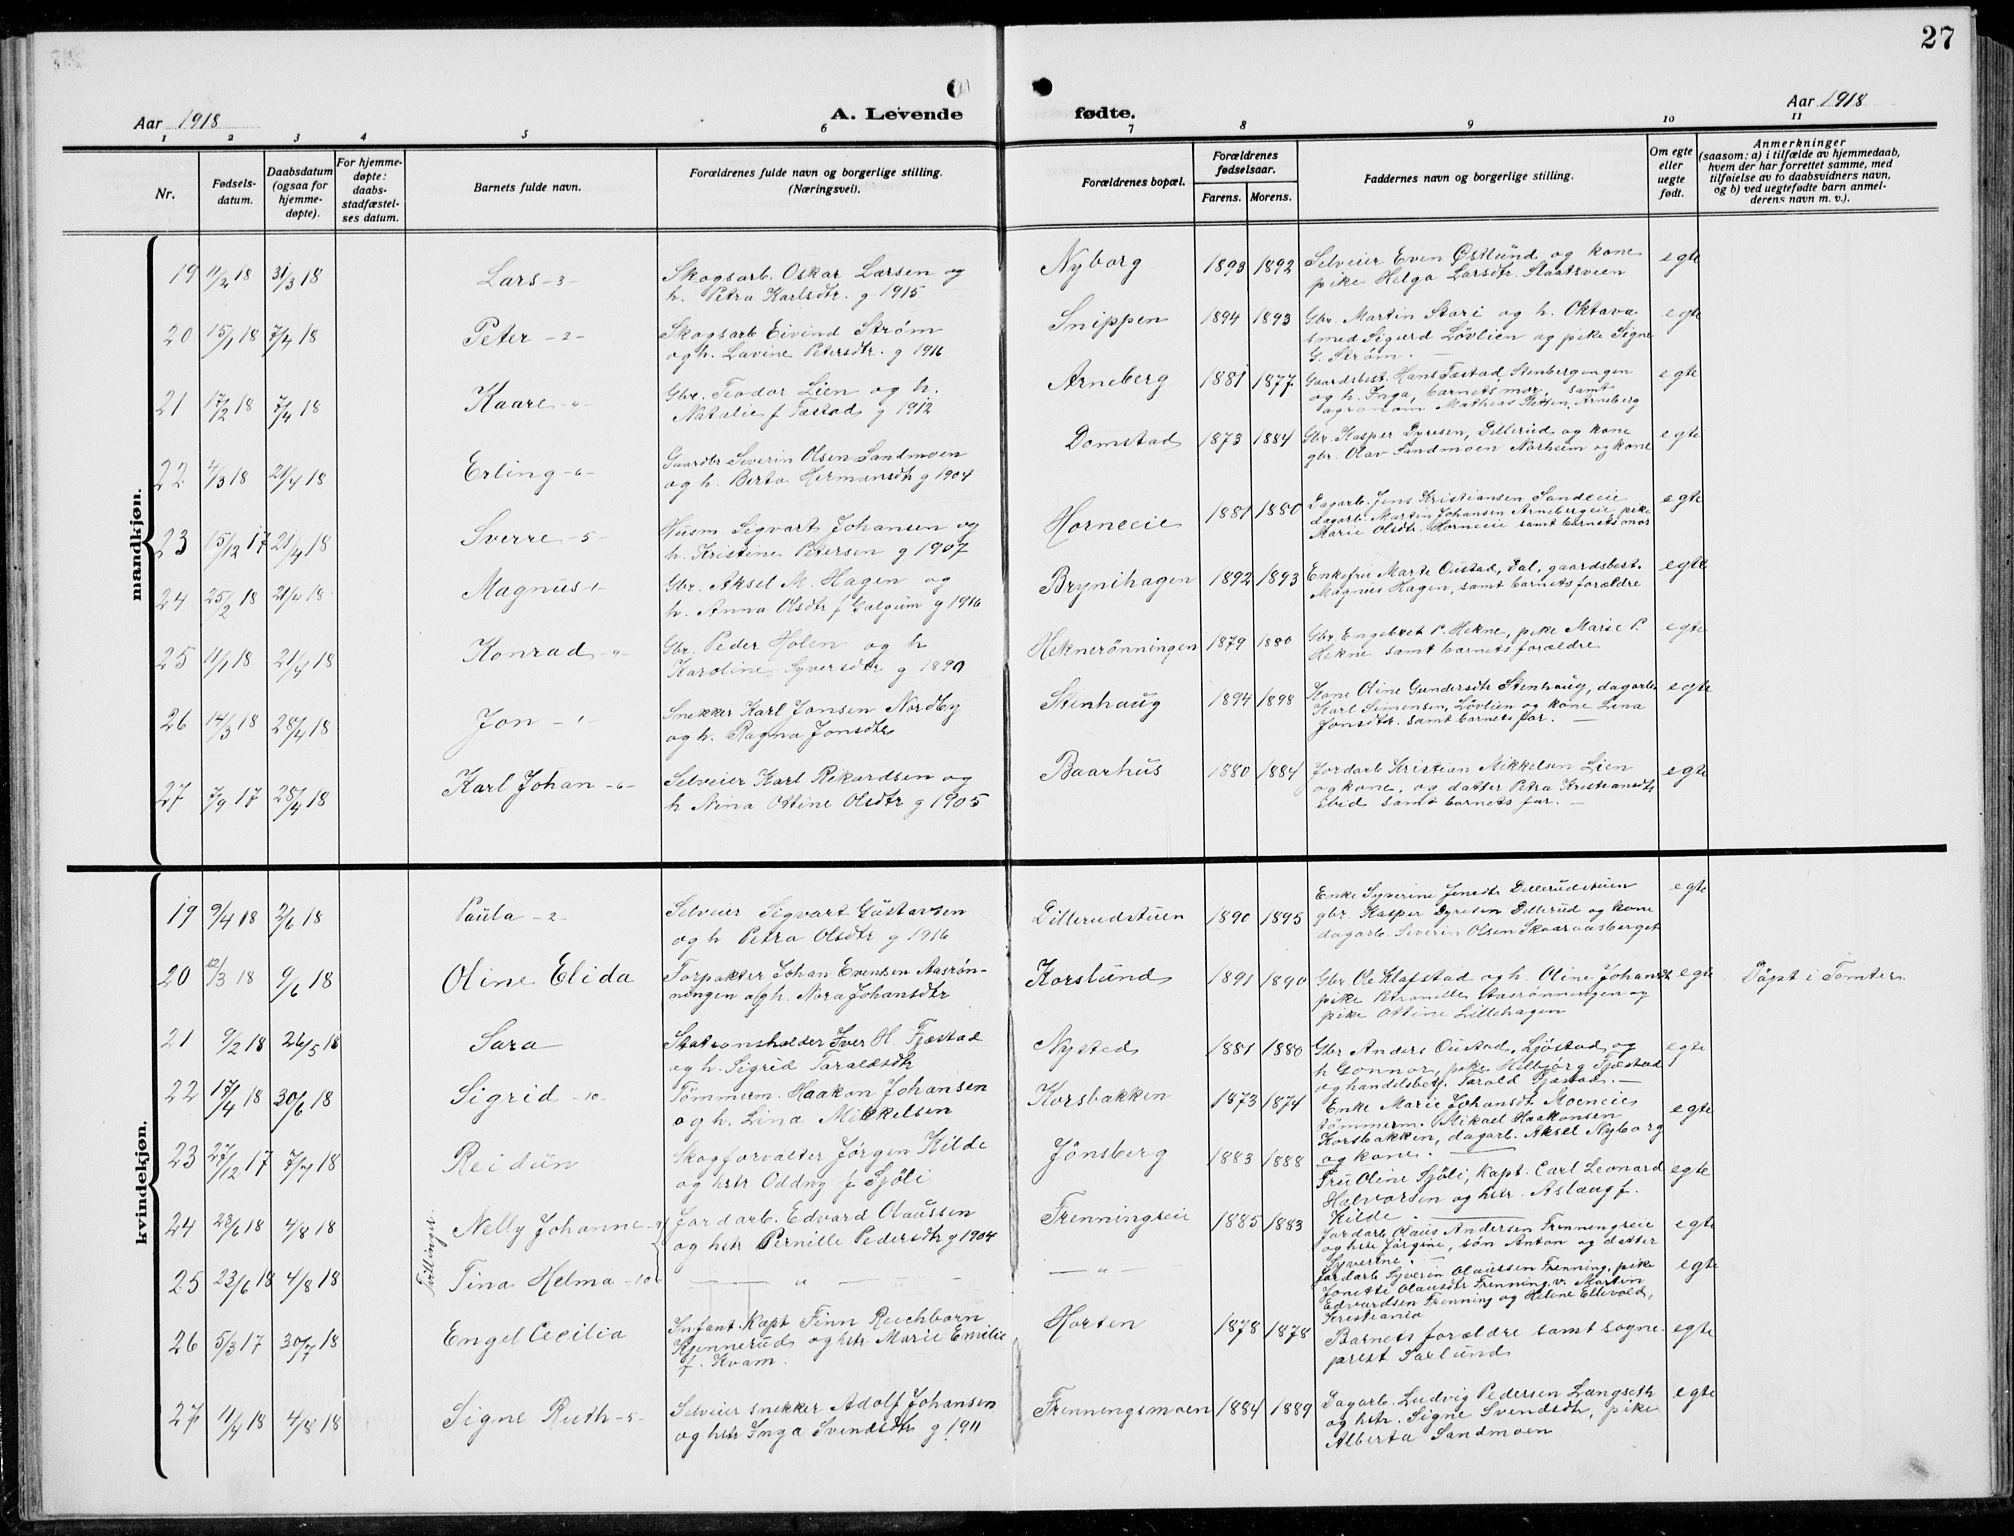 27
Aar 1918
A. Levende
fødte.
Aar 1918
1 2 3 4 5 6 7 8 9 10 11
Nr.
Fødsels-
datum.
Daabsdatum
(ogsaa for
hjemme-
døpte).
For hjemme-
døpte:
daabs-
stadfæstel-
ses datum.
Barnets fulde navn.
Forældrenes fulde navn og borgerlige stilling.
(Næringsvei).
Forældrenes bopæl.
Forældrenes
fødselsaar.
Farens. Morens.
Faddernes navn og borgerlige stilling.
Om egte
eller
uegte
født.
Anmerkninger
(saasom: a) i tilfælde av hjemmedaab,
hvem der har forrettet samme, med
tilføielse av to daabsvidners navn,
og b) ved uegtefødte barn anmel-
derens navn m. v.).
mandkjøn.
19 11/2 18 31/3 18 Lars -3- Skogsarb. Oskar Larsen og
h. Petra Karlsdtr. g 1915
Nyborg 1893 1892 Selveier Even Østlund og kone
pike Helga Larsdtr. Staatsveen
egte
20 15/1 18 7/4 18 Peter -2- Skogsarb Eivind Strøm
og h. Lavine Petersdtr. g 1916
Snippen 1894 1893 Gbr. Martin Stori og h. Oktava
smed Sigurd Løvlien og pike Signe
G. Strøm. —
egte
21 17/2 18 7/4 18 Kaare Gbr. Teodor Lien og h.
Natalie f Fæstad g 1912
Arneberg 1881 1877 Gaardsbest. Hans Fæstad, Stenbergengen
og h. Inga, barnets mor, samt
agronom Mathias Arneberg
egte
22 4/3 18 21/4 18 Erling -6- Gaardbr Severin Olsen Sandmoen
og h. Berta Hermansdtr g 1904
Domstad 1873 1884 Gbr. Kasper Dyresen, Dillerud og kone
gbr. Olav Sandmoen Norheim og kone
egte
23 15/12 17 21/4 18 Sverre -5- Husm. Sigvart Johansen og
h. Kristine Petersen g 1907
Horneeie 1881 1880 Dagarb. Jens Kristiansen Sandeeie
dagarb. Martin Johansen Arnebergeie pike
Marie Olsdtr. Horneeie samt barnets mor
egte
24 25/2 18 21/4 18 Magnus -1- Gbr. Aksel M. Hagen og
h. Anna Olsdtr f Galgum g 1916
Brynihagen 1892 1893 Enkefru Marte Oustad, Dal, gaardsbest.
Magnus Hagen, samt barnets forældre
egte
25 11/1 18 21/4 18 Konrad Gbr. Peder Holen og h
Karoline Syversdtr g 1890
Heknerønningen 1879 1880 Gbr Engebret P. Hekne, pike Marie P.
Hekne samt barnets forældre
egte
26 14/3 18 28/4 18 Jon -1- Snekker Karl Jonsen Nordby
og h. Ragna Jonsdtr
Stenhaug 1894 1898 Kone Oline Gundersdtr Stenhaug, dagarb.
Karl Simensen, Løvlien og kone Lina
Jonsdtr. samt barnets far. —
egte
27 7/9 17 28/4 18 Karl Johan -6- Selveier Karl Rikardsen og
h Nina Ottine Olsdtr g 1905
Baarhus 1880 1884 Jordarb Kristian Mikkelsen Lien
og kone, og datter Petra Kristiansdtr
ibid samt barnets far. —
egte
kvindekjøn.
19 9/4 18 2/6 18 Paula -2- Selveier Sigvart Gustavsen
og h Petra Olsdtr g 1916
Dillerudstuen 1890 1895 Enke Syverine Jensdtr Dillerudstuen
gbr. Kasper Dyresen Dillerud og kone
dagarb. Severin Olsen Skaaraasberget
egte
20 12/3 18 9/6 18 Oline Elida Forpakter Johan Evensen Aasrøn-
ningen og h. Nora Johansdtr
Korslund 1891 1890 Gbr Ole Klafstad og h. Oline Johansdtr
pike Petronille Aasrønningen og
pike Ottine Lillehagen
egte Døpt i Tomter
21 9/2 18 26/5 18 Sara Statsonsholder Iver H. Fjæstad
og h. Sigrid Taraldsdtr
Nysted 1881 1880 Gbr Anders Oustad, Ljøstad og
h Gonnor, pike Helbjørg Fjæstad
og handelsbetj. Tarald Fjæstad. —
egte
22 17/4 18 30/6 18 Sigrid -10- Tømmerm. Haakon Johansen
og h. Lina Mikkelsen
Korsbakken 1873 1874 Enke Marie Johansdt Moeneie
tømmerm. Mikael Haakonsen
Korsbakken, dagarb. Aksel Nyborg
og kone. —
egte
23 27/12 17 7/7 18 Reidun Skogforvalter Jørgen Kilde
og hstr Oddny f Sjøli
Jønsberg 1883 1888 Fru Oline Sjøli, Kapt. Carl Leonard
Halvorsen og hstr. Aslaug f.
Kilde. —
egte
Tvillinger
24 23/6 18 4/8 18 Nelly Johanne -9- Jordarb. Edvard Olaussen
og hstr Pernille Pedersdtr g 1904
Frenningseie 1885 1883 Jordarb Olaus Andersen Frenningseie
og hstr Jørgine, søn Anton og datter
Syverine.
egte
25 23/6 18 4/8 18 Tina Helma -10- — „ —
— „ — Jordarb Syverin Olaussen Frenning, pike
Jonette Olausdtr Frenning v. Martin
Edvardsen Frenning og Helene Ellevold,
Kristiania
egte
26 5/3 17 30/7 18 Engel Cecilia Infant. Kapt Finn Reichborn
Kjennerud og hstr Marie Emilie
f. Kvam.
Horten 1878 1878 Barnets forældre samt sogne-
prest Saxlund
egte
27 11/4 18 4/8 18 Signe Ruth -5- Selveier snekker Adolf Johansen
og hstr Inga Svendsdtr g 1911
Frenningsmoen 1884 1889 Dagarb. Ludvig Pedersen Langseth
og hstr. Signe Svendsdtr, pike
Alberta Sandmoen
egte